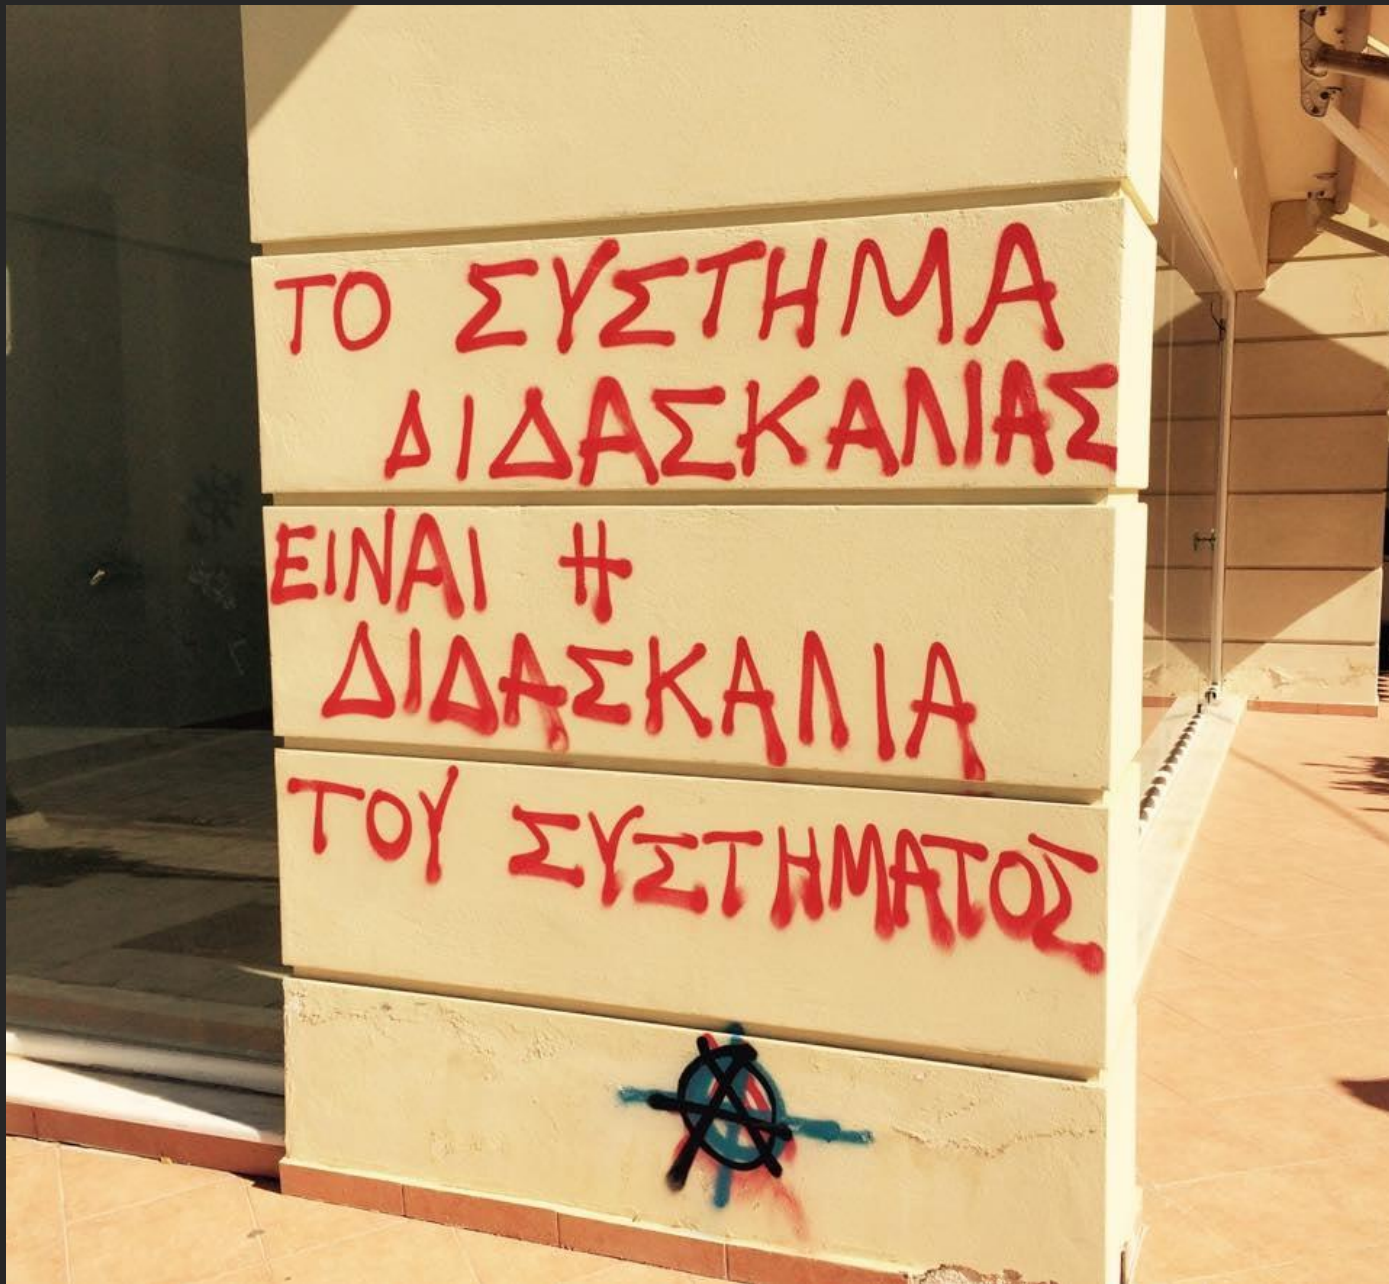 ΤΟ ΣΥΣΤΗΜΑ
ΔΙΔΑΣΚΑΛΙΑΣ
ΕΙΝΑΙ Η
ΔΙΔΑΣΚΑΛΙΑ
ΤΟΥ ΣΥΣΤΗΜΑΤΟΣ